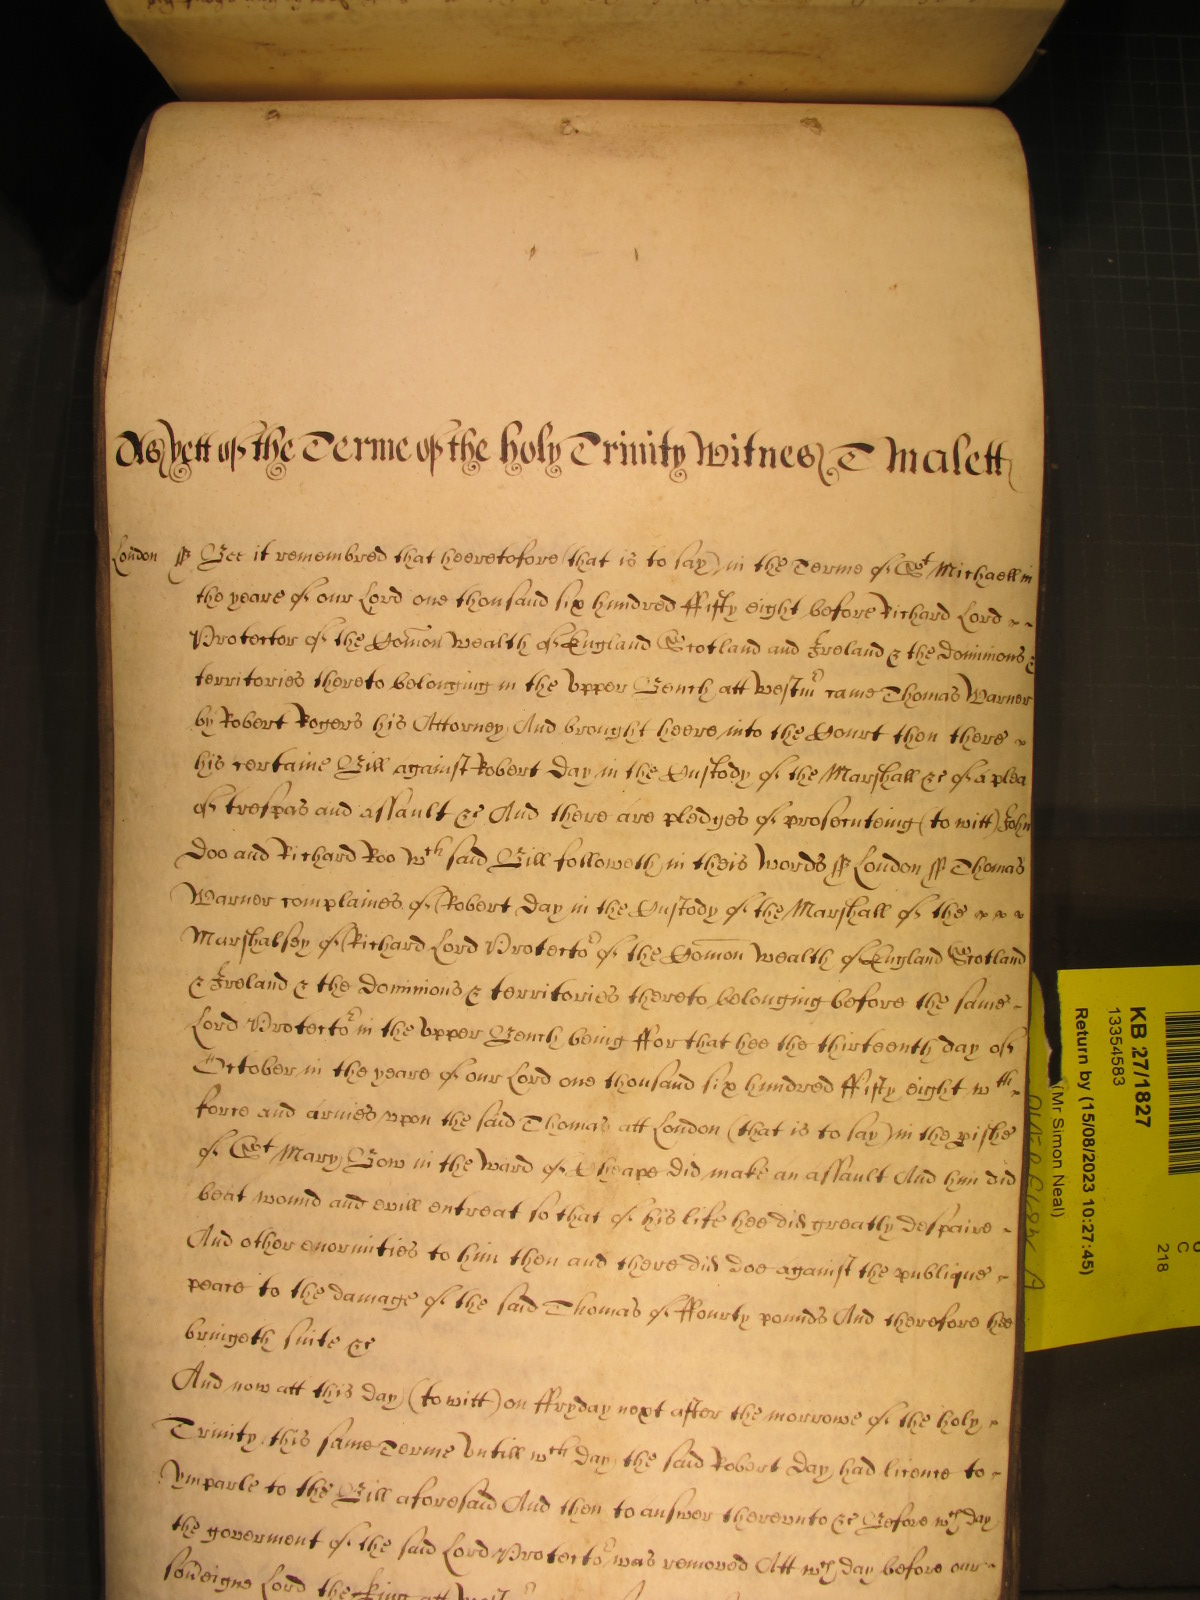 As yett of the Terme of the holy Trinity Witnes T Malett
London ss Bee it remembred that heeretofore (that is to say) in the Terme of St Michaell in
the yeare of our Lord one thousand six hundred ffifty eight before Richard Lord
Protector of the Comon wealth of England Scotland and Ireland & the dominions &
territories thereto belonging in the Upper Bench att Westmr came Thomas Warner
by Robert Rogers his Attorney And brought heere into the Court then there
his certaine Bill against Robert Day in the Custody of the Marshall &c of a plea
of trespas and assault &c And there are pledges of prosecuteing (to witt) John
Doo and Richard Roo wch said Bill followeth in theis words ss London ss Thomas
Warner complaines of Robert Day in the Custody of the Marshall of the
Marshalsey of Richard Lord Protector of the Comon wealth of England Scotland
& Ireland & the Dominions & territories thereto belonging before the same
Lord Protector in the Upper Bench being ffor that hee the thirteenth day of
October in the yeare of our Lord one thousand six hundred ffifty eight wth
force and armes upon the said Thomas att London (that is to say) in the pishe
of St Mary Bow in the Ward of Cheape did make an assault And him did
beat wound and evill entreat so that of his life hee did greatly despaire
And other enormities to him then and there did doe against the publique
peace to the damage of the said Thomas of ffourty pounds And therefore hee
bringeth suite &c
And now att this day (to witt) on ffryday next after the morrowe of the holy
Trinity this same Terme Untill wch day the said Robert Day had licence to
Ymparle to the Bill aforesaid And then to answer thereunto &c Before wch day
the goverment of the said Lord Protector was removed Att wch day before our
soveigne Lord the King att
KB 27/1827
13354583
Return by (15/08/2023 10:27:45)
(Mr Simon Neal)
C
218